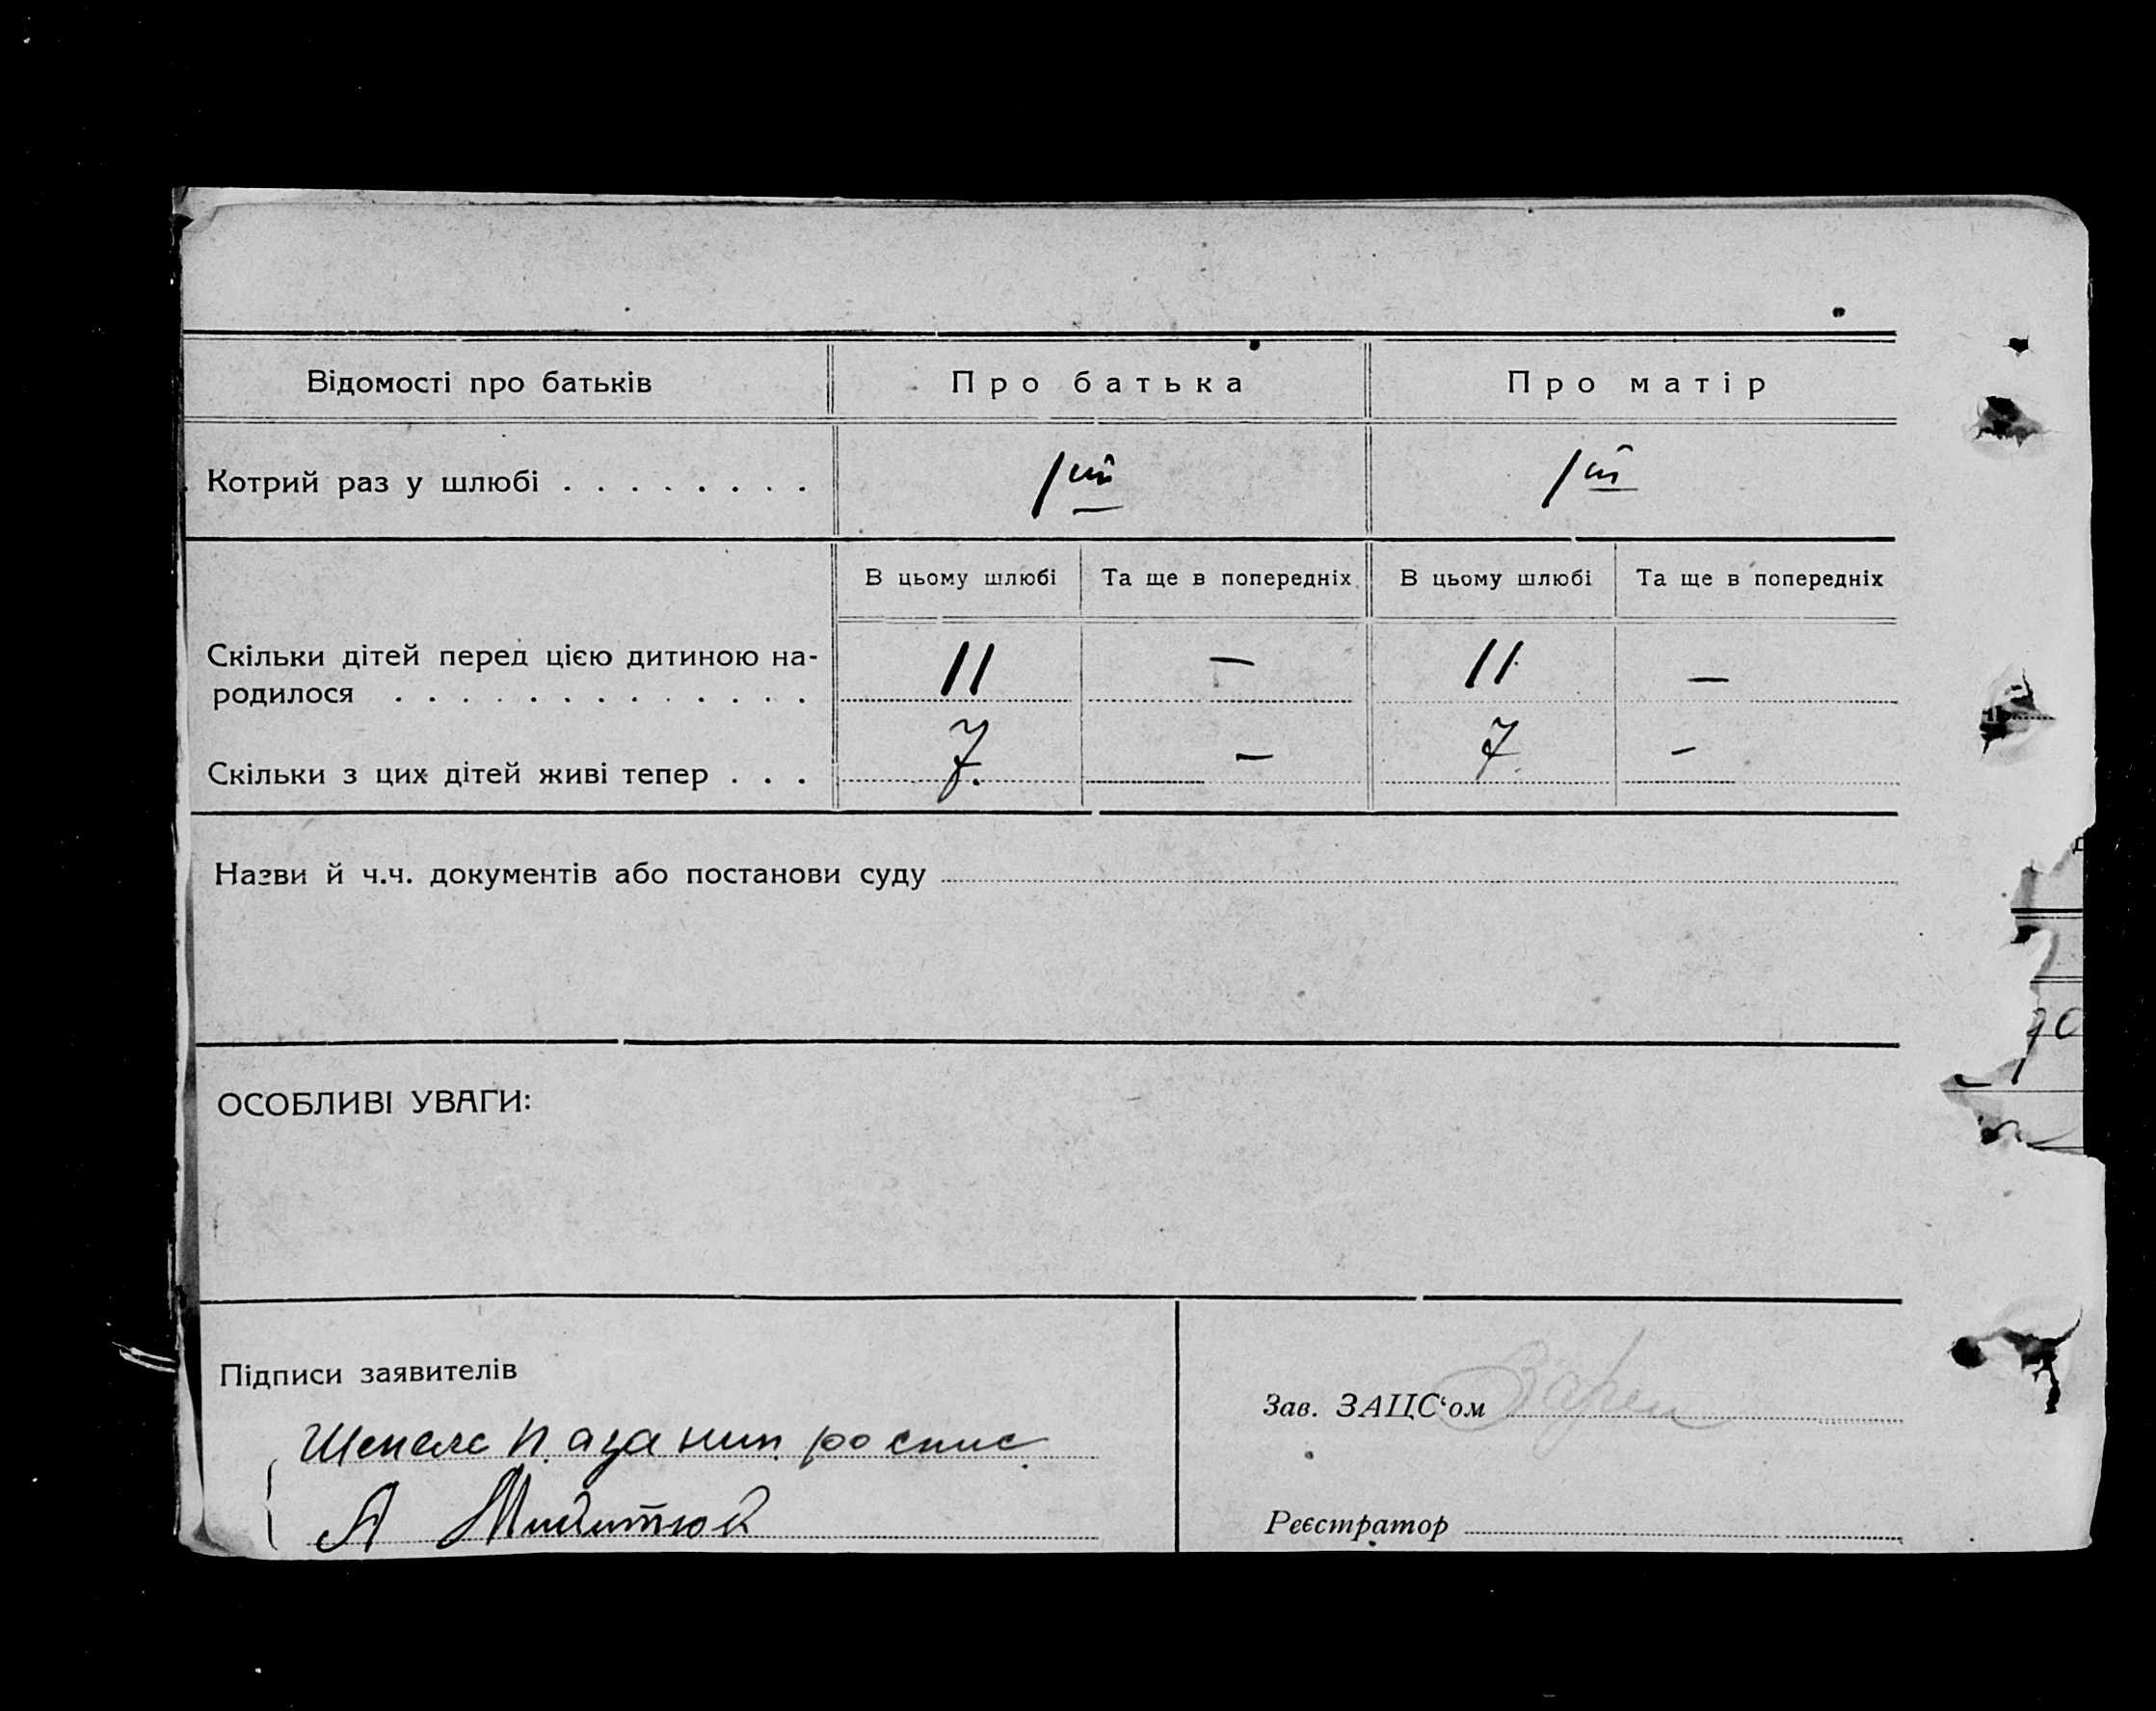 Відомості про батьків
Про батька
Про матір
Котрий раз у шлюбі . . . . . . . .
1ий
1ий
В цьому шлюбі
Та ще в попередніх
В цьому шлюбі
Та ще в попередніх
Скільки дітей перед цією дитиною на-
родилося . . . . . . . . . . . . .
11
—
11
—
Скільки з цих дітей живі тепер . . .
7.
—
7
—
Назви й ч.ч. документів або постанови суду
ОСОБЛИВІ УВАГИ:
Підписи заявителів
Зав. ЗАЦС‘ом
роспис
А Микитюк
Реєстратор